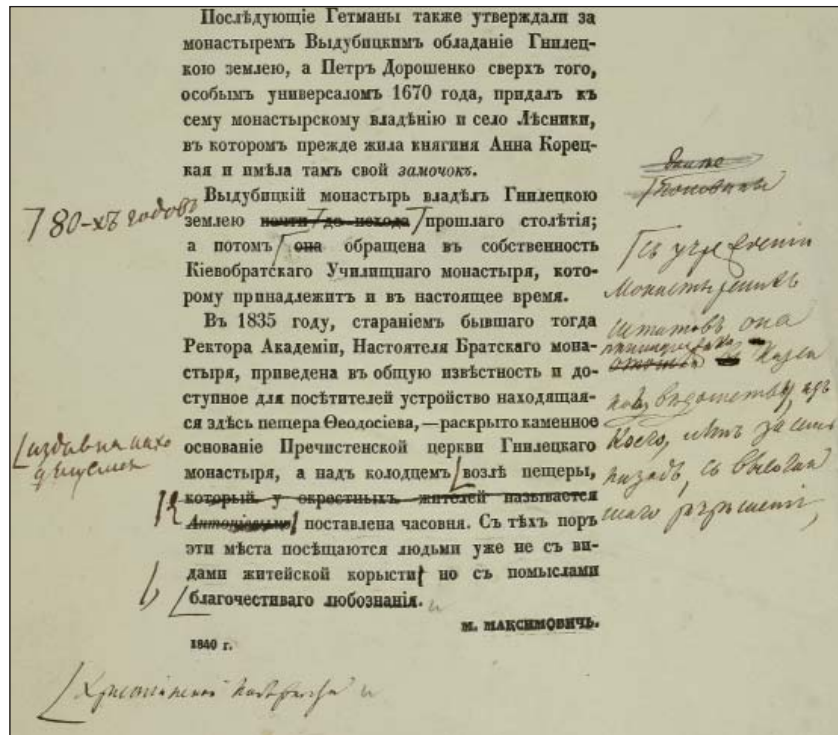 Послѣдующіе Гетманы также утверждали за
монастыремъ Выдубицкимъ обладаніе Гнилец-
кою землею, а Петръ Дорошенко сверхъ того,
особымъ универсаломъ 1670 года, придалъ къ
сему монастырскому владѣнію и село Лѣсники,
въ которомъ прежде жила княгиня Анна Корец-
кая и имѣла тамъ свой замочокъ.
Выдубицкій монастырь владѣлъ Гнилецкою
80-хъ годовъ
землею почти до исхода прошлаго столѣтія;
а потомъ она обращена въ собственность
Кіевобратскаго Училищнаго монастыря, кото-
рому принадлежитъ и въ настоящее время.
Въ 1835 году, стараніемъ бывшаго тогда
Ректора Академіи, Настоятеля Братскаго мона-
стыря, приведена въ общую извѣстность и до-
ступное для посѣтителей устройство находящая-
ся здѣсь пещера Ѳеодосіева,—раскрыто каменное
основаніе Пречистенской церкви Гнилецкаго
монастыря, а надъ колодцемъ возлѣ пещеры,
который у окрестныхъ жителей называется
Антоніевымъ поставлена часовня. Съ тѣхъ поръ
эти мѣста посѣщаются людьми уже не съ ви-
дами житейской корысти но съ помыслами
благочестиваго любознанія.
М. МАКСИМОВИЧЬ.
1840 г.
половины
съ учрежденія
монастырскихъ
штатовъ она
казен
вѣдомства, изъ
коего, лѣтъ за семь
назадъ, съ высочай
шаго разрѣшенія,
издавна нахо
дящемся
Христіанской